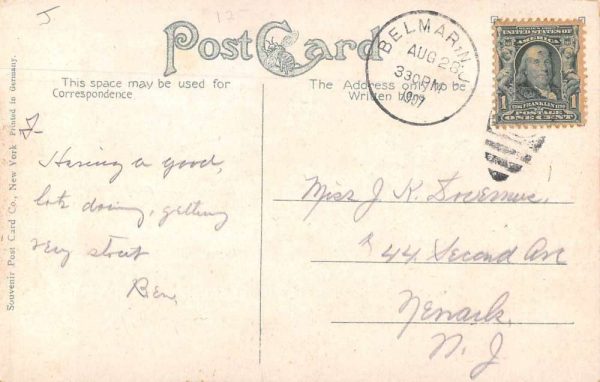 J
12-
Post Card
BELMAR, N.J.
AUG 28
330 PM
1907
UNITED STATES OF AMERICA
1 FRANKLIN 1
POSTAGE
ONE CENT
This space may be used for
Correspondence.
The Address only to be
Written here.
Souvenir Post Card Co., New York Printed in Germany.
J-
Having a good,
lots doing, getting
very stout
Ben,
Miss J. K. Doremus,
44 Second Ave
Newark,
N. J